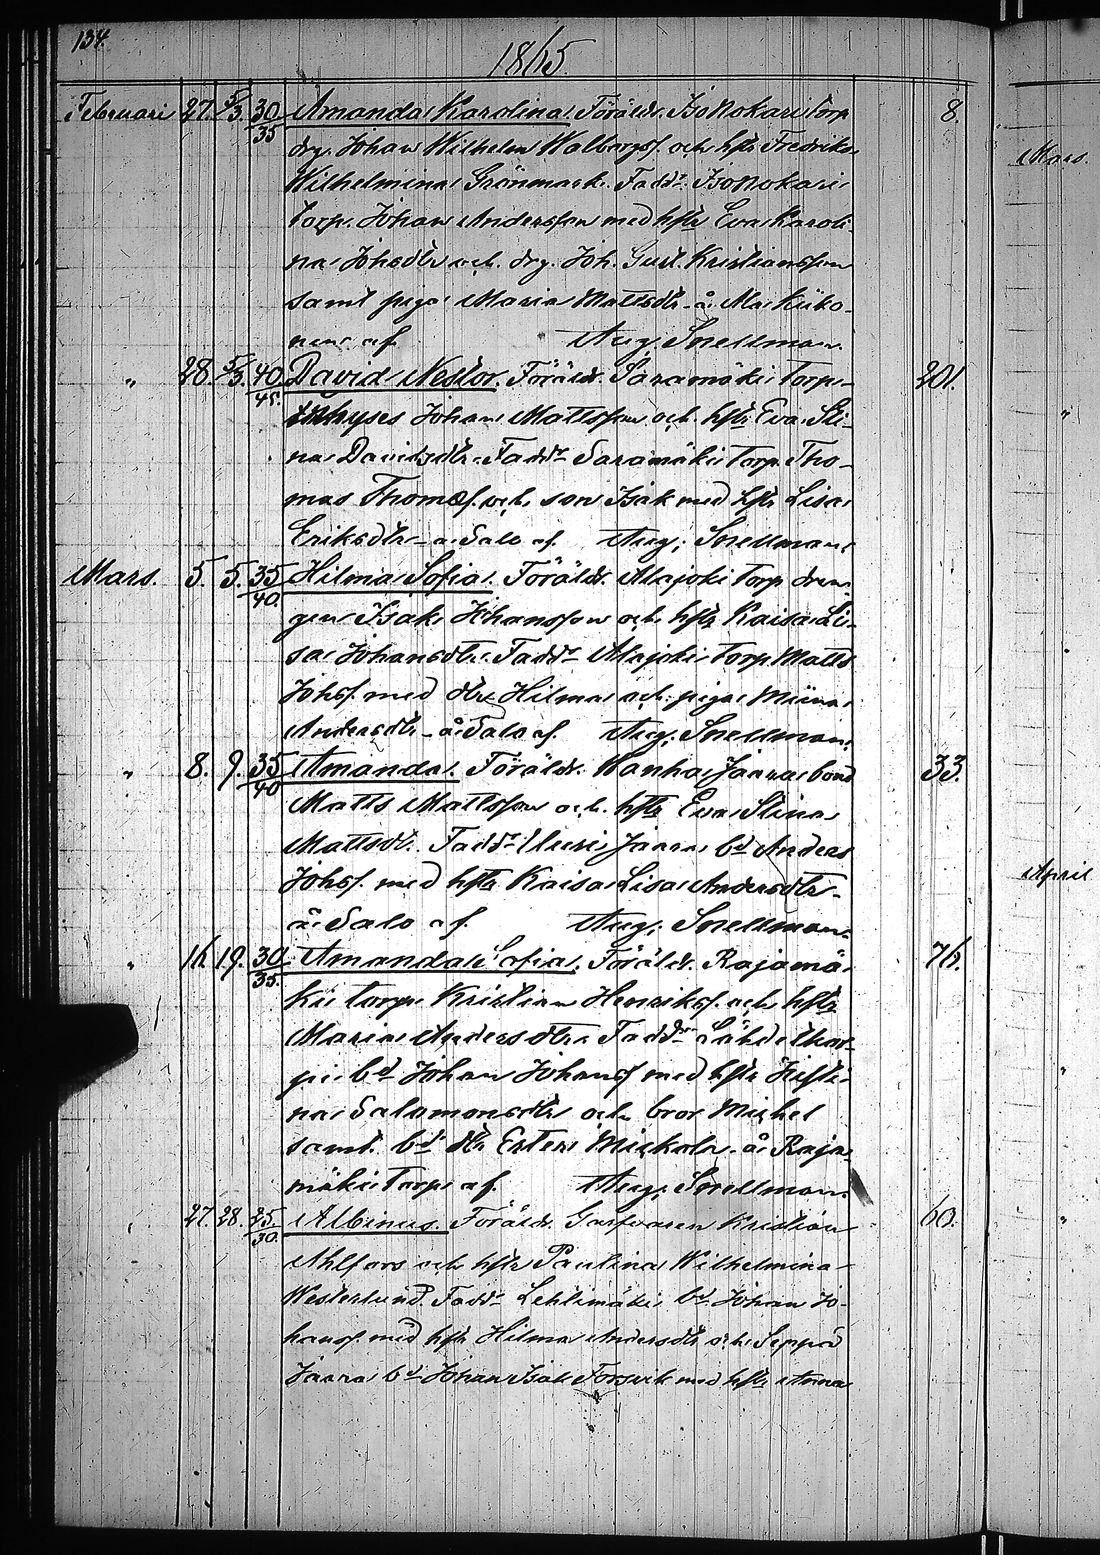 134.
1865.
Februari 27. 5/3. 30/35 Amanda Karolina. Föräldr. Isokokari torp 8.
drg. Johan Wilhelm Walborgsf. och hstr Fredrika
Wilhelmina Grönmark. Faddr Isokokari
torp. Johan Andersson med hstr Eva Karoli-
na Johsdtr och drg. Joh. Gust. Kristiansson
samt piga Maria Mattsdtr å Ala Kiiko-
nen af Aug. Snellman.
" 28. 5/3. 40/45. David Nestor. Föräldr. Saramäki torp- 201.
inhyses Johan Mattsson och hstr Eva Sti-
na Davidsdtr. Faddr Saramäki torp. Tho-
mas Thomasf. och son Isak med hstr Lisa
Eriksdtr å Salo af Aug. Snellman.
Mars. 5. 5. 35/40. Hilma Sofia. Föräldr. Alajoki torp dren-
gen Isak Johansson och hstr Kaisa Li-
sa Johansdtr. Faddr Alajoki torp Matts
Johsf. med dtr Hilma och piga Miina
Andersdtr å Salo af Aug. Snellman.
" 8. 9. 35/40 Amanda. Föräldr. Wanha Jaara bond 33.
Matts Mattsson och hstr Eva Stina
Mattsdt. Faddr Uusi Jaara bd Anders
Johsf. med hstr Kaisa Lisa Andersdtr
å Salo af Aug. Snellman.
" 16 19. 30/35. Amanda Sofia. Föräldr. Rajamä- 76.
ki torp. Kristian Henriksf. och hstr
Maria Andersdtr. Faddr
bd Johan Johansf med hstr
na Salomonsdtr och bror Mickel
samt bd dtr Ester Mickola å Raja-
mäki torp af Aug. Snellman.
27. 28. 25/30. Albinus. Föräldr. Garfvaren Kristian 60.
Ahlfors och hstr Paulina Wilhelmina
Westerlund. Faddr Lehtimäki bd Johan Jo-
hansf. med hstr Hilma Andersdtr och Seppä
Jaara bd Johan Isak Forsvik med hstr Anna
Mars.
"
April
"
"